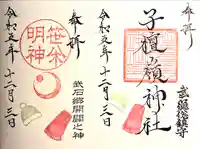 奉拝
武石総鎮守
子檀嶺神社
令和元年十二月三日
奉拝
笹焼明神
武石郷開闢之神
令和元年十二月三日